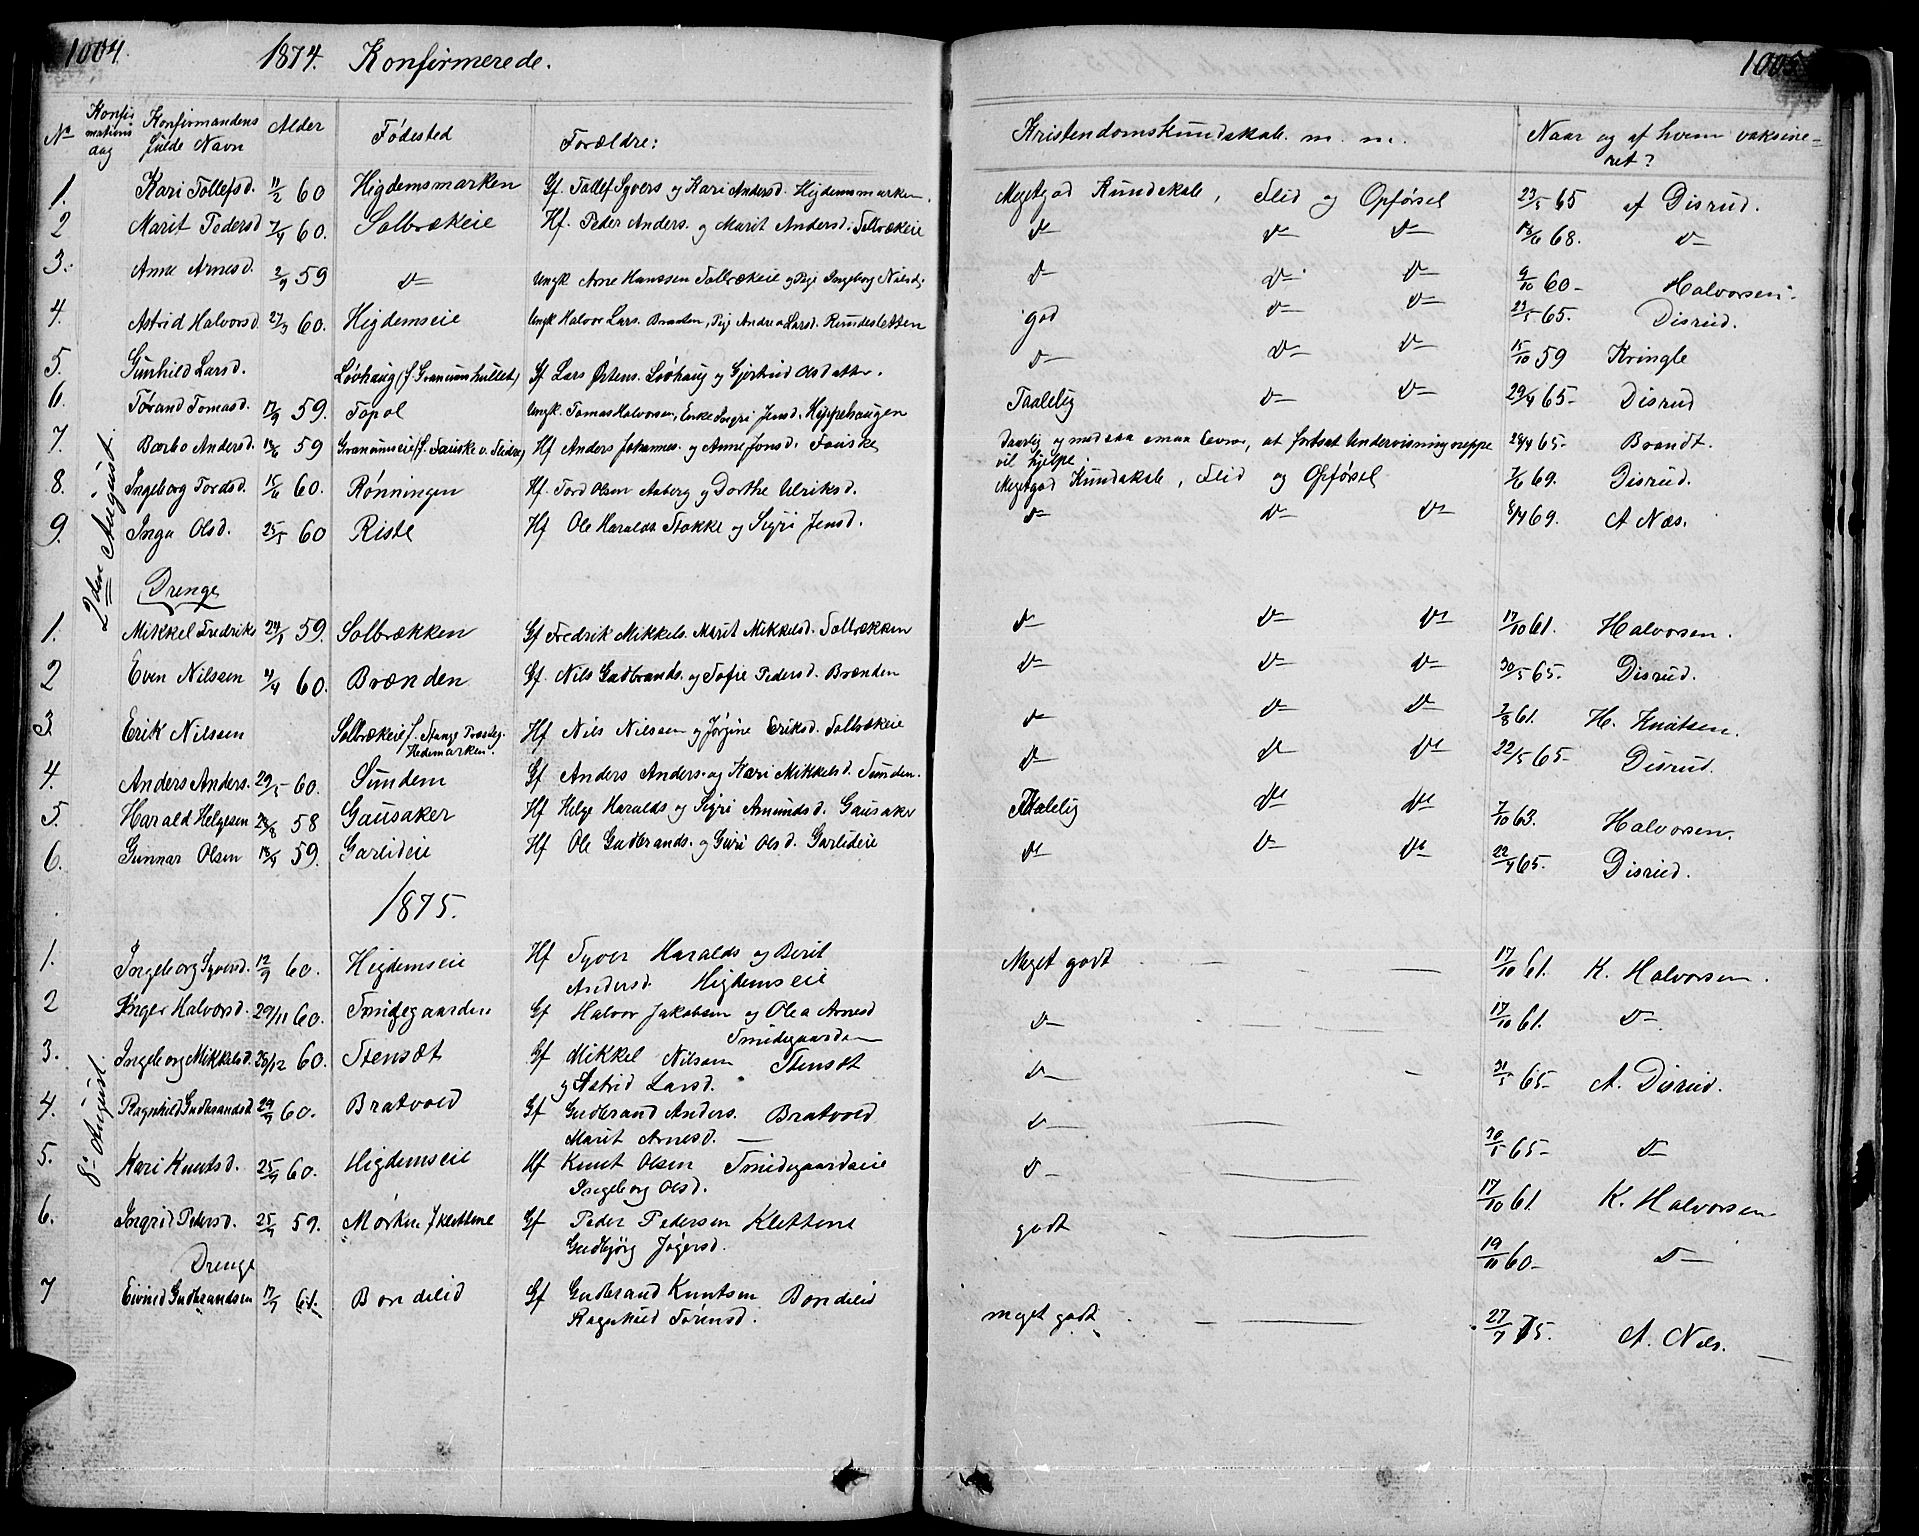 1004. 1874. Konfirmerede. 1005
No Konfirmations dag Konfirmandens fulde Navn Alder Fødested Forældre: Kristendomskundskab m. m. Naar og af hvem vaksineret?
2den August.
1. Kari Tollefsd. 11/2 60 Higdemsmarken Gf. Tollef Syvers og Kari Andersd. Higdemsmarken. Megetgod Kundskab, Flid og Opførsel 23/5 65 af Disrud.
2 Marit Pedersd 7/4 60. Solbrækeie Hf. Peder Anders. og Marit Andersd. Solbrækeie D– D– D– 13/6 68. D–
3. Anne Arnesd. 2/9 59 D– Ungk Arne Hanssen Solbrækeie og Pige Ingeborg Nilsd. D– D– D– 9/10 60– Halvorsen.
4. Astrid Halvorsd. 27/3 60. Higdemseie Ungk Halvor Lars. Braaten, Pige Andrea Larsd. Rundesletten god D– D– 23/5 65. Disrud.
5. Gunhild Larsd. Løvhaug (f. Granumshullet) Gf Lars Østens. Løvhaug og Gjertrud Olsdatter. D– D– D– 15/10 59 Kringle
6. Torand Tomasd. 17/9 59. Fopol Ungk. Tomas Halvorsen, Enke Ingri Jensd. Hippehaugen Taalelig D– D– 29/4 65– Disrud
7. Barbo Andersd. 13/6 59 Granumseie (f. Fauske v. Slidre) Hf Anders Johannes. og Anne Jonsd. Fauske Daarlig og med saa smaa Evner, at fortsat Undervisning neppe vil hjelpe. 28/4 65– Brandt.
8. Ingeborg Tordsd. 15/6 60. Rønningen Hf. Tord Olsen Aaberg og Dorthe Ulriksd. Megetgod Kundskab, Flid og Opførsel 7/6 69. Disrud.
9. Inga Olsd. 25/5 60 Riste Hf Ole Haralds Stokke og Sigri Jensd. D– D– D– 8/4 69. A Næs.
Drenge
1. Mikkel Fredriks 24/5 59. Solbrækken Gf Fredrik Mikkels. Marit Mikkelsd. Solbrækken D– D– D– 17/10 61. Halvorsen.
2 Even Nilssen 11/4 60. Brænden Gf. Nils Gudbrands. og Sofie Pedersd. Brænden D– D– D– 30/5 65. Disrud.
3. Erik Nilssen Solbrækeie f. Stange Præsteg. Hedemarken. Hf Nils Nilssen og Jørgine Eriksd. Solbrækeie D– D– D– 2/8 61. H. Knutsen.
4. Anders Anders. 29/5 60. Sundem Gf Anders Anders. og Kari Mikkelsd. Sundem. D– D– D– 22/5 65– Disrud.
5. Harald Helgesen 23/8 58 Gausaker Hf Helge Haralds og Sigri Amundsd. Gausaker Taalelig D– D– 7/10 63. Halvorsen.
6. Gunnar Olsen 13/9 59. Garlideie Hf Ole Gudbrands. og Guri Olsd. Garlideie D– D– D– 22/4 65. Disrud.
1875.
8. August.
1. Ingeborg Syversd. 12/9 60. Higdemseie Hf Syver Haralds og Berit Andersd. Higdemseie Meget godt – – 17/10 61. K. Halvorsen.
2 Inger Halvorsd. 29/11 60. Smidegaarden Gf Halvor Jakobsen og Olea Arnesd Smidegaarden D– – 17/10 61. D–
3. Ingeborg Mikkelsd. 28/12 60. Stensæt Gf Mikkel Nilsen og Astrid Larsd. Stensæt D– – 31/5 65– A. Disrud.
4. Ragnhild Gudbrandsd 29/9 60. Bratvold Gf Gudbrand Anders. Marit Arnesd. – Bratvold D– – 30/5 65– D–
5. Kari Knutsd. 25/9 60. Higdemseie Hf Knut Olsen Ingeborg Olsd. Smidegaardseie D– – 17/10 61 K. Halvorsen
6. Ingrid Pedersd. 25/9 59. Mørken f Klettene Gf Peder Pedersen Gudbjørg Jøgersd. Klettene godt – – 19/11 60– D–
Drenge
7 Eivind Gudbrandsen 17/7 61. Bondelid Gf Gudbrand Knutsen Ragnhild Torensd. Bondelid meget godt – – 27/7 75. A. Næs. –